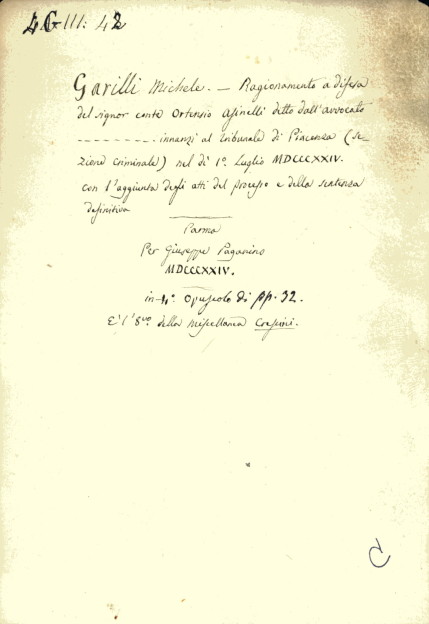 4G III: 42
Garilli Michele. — Ragionamento a difesa
del signor conte Ortensio Asinelli detto dall'avvocato
- - - - - - - - . innanzi al tribunale di Piacenza (se-
zione criminale) nel dì 1º. Luglio MDCCCXXIV.
con l'aggiunta degli atti del processo e della sentenza
definitiva
Parma
Per Giuseppe Paganino
MDCCCXXIV.
in-4º. Opuscolo di pp. 32.
È l'8vo. della miscellanea Crescini.
C